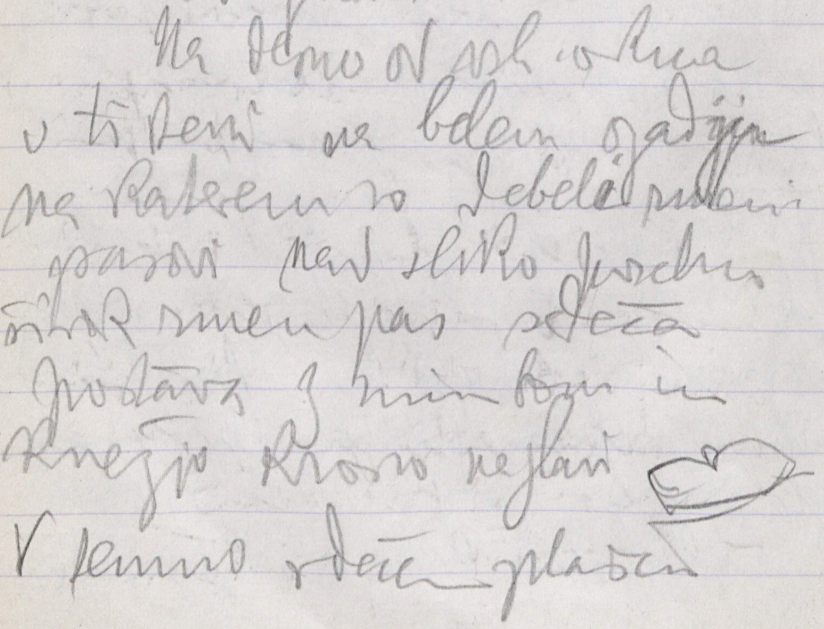 Na desno od vsh. okna
v ti steni na belem ozadju
na katerem so debeli rmeni
pasovi nad sliko
širok rmen pas sdeča
postava z nimbom in
knežjo krono na glavi
V temno rdečem plašču